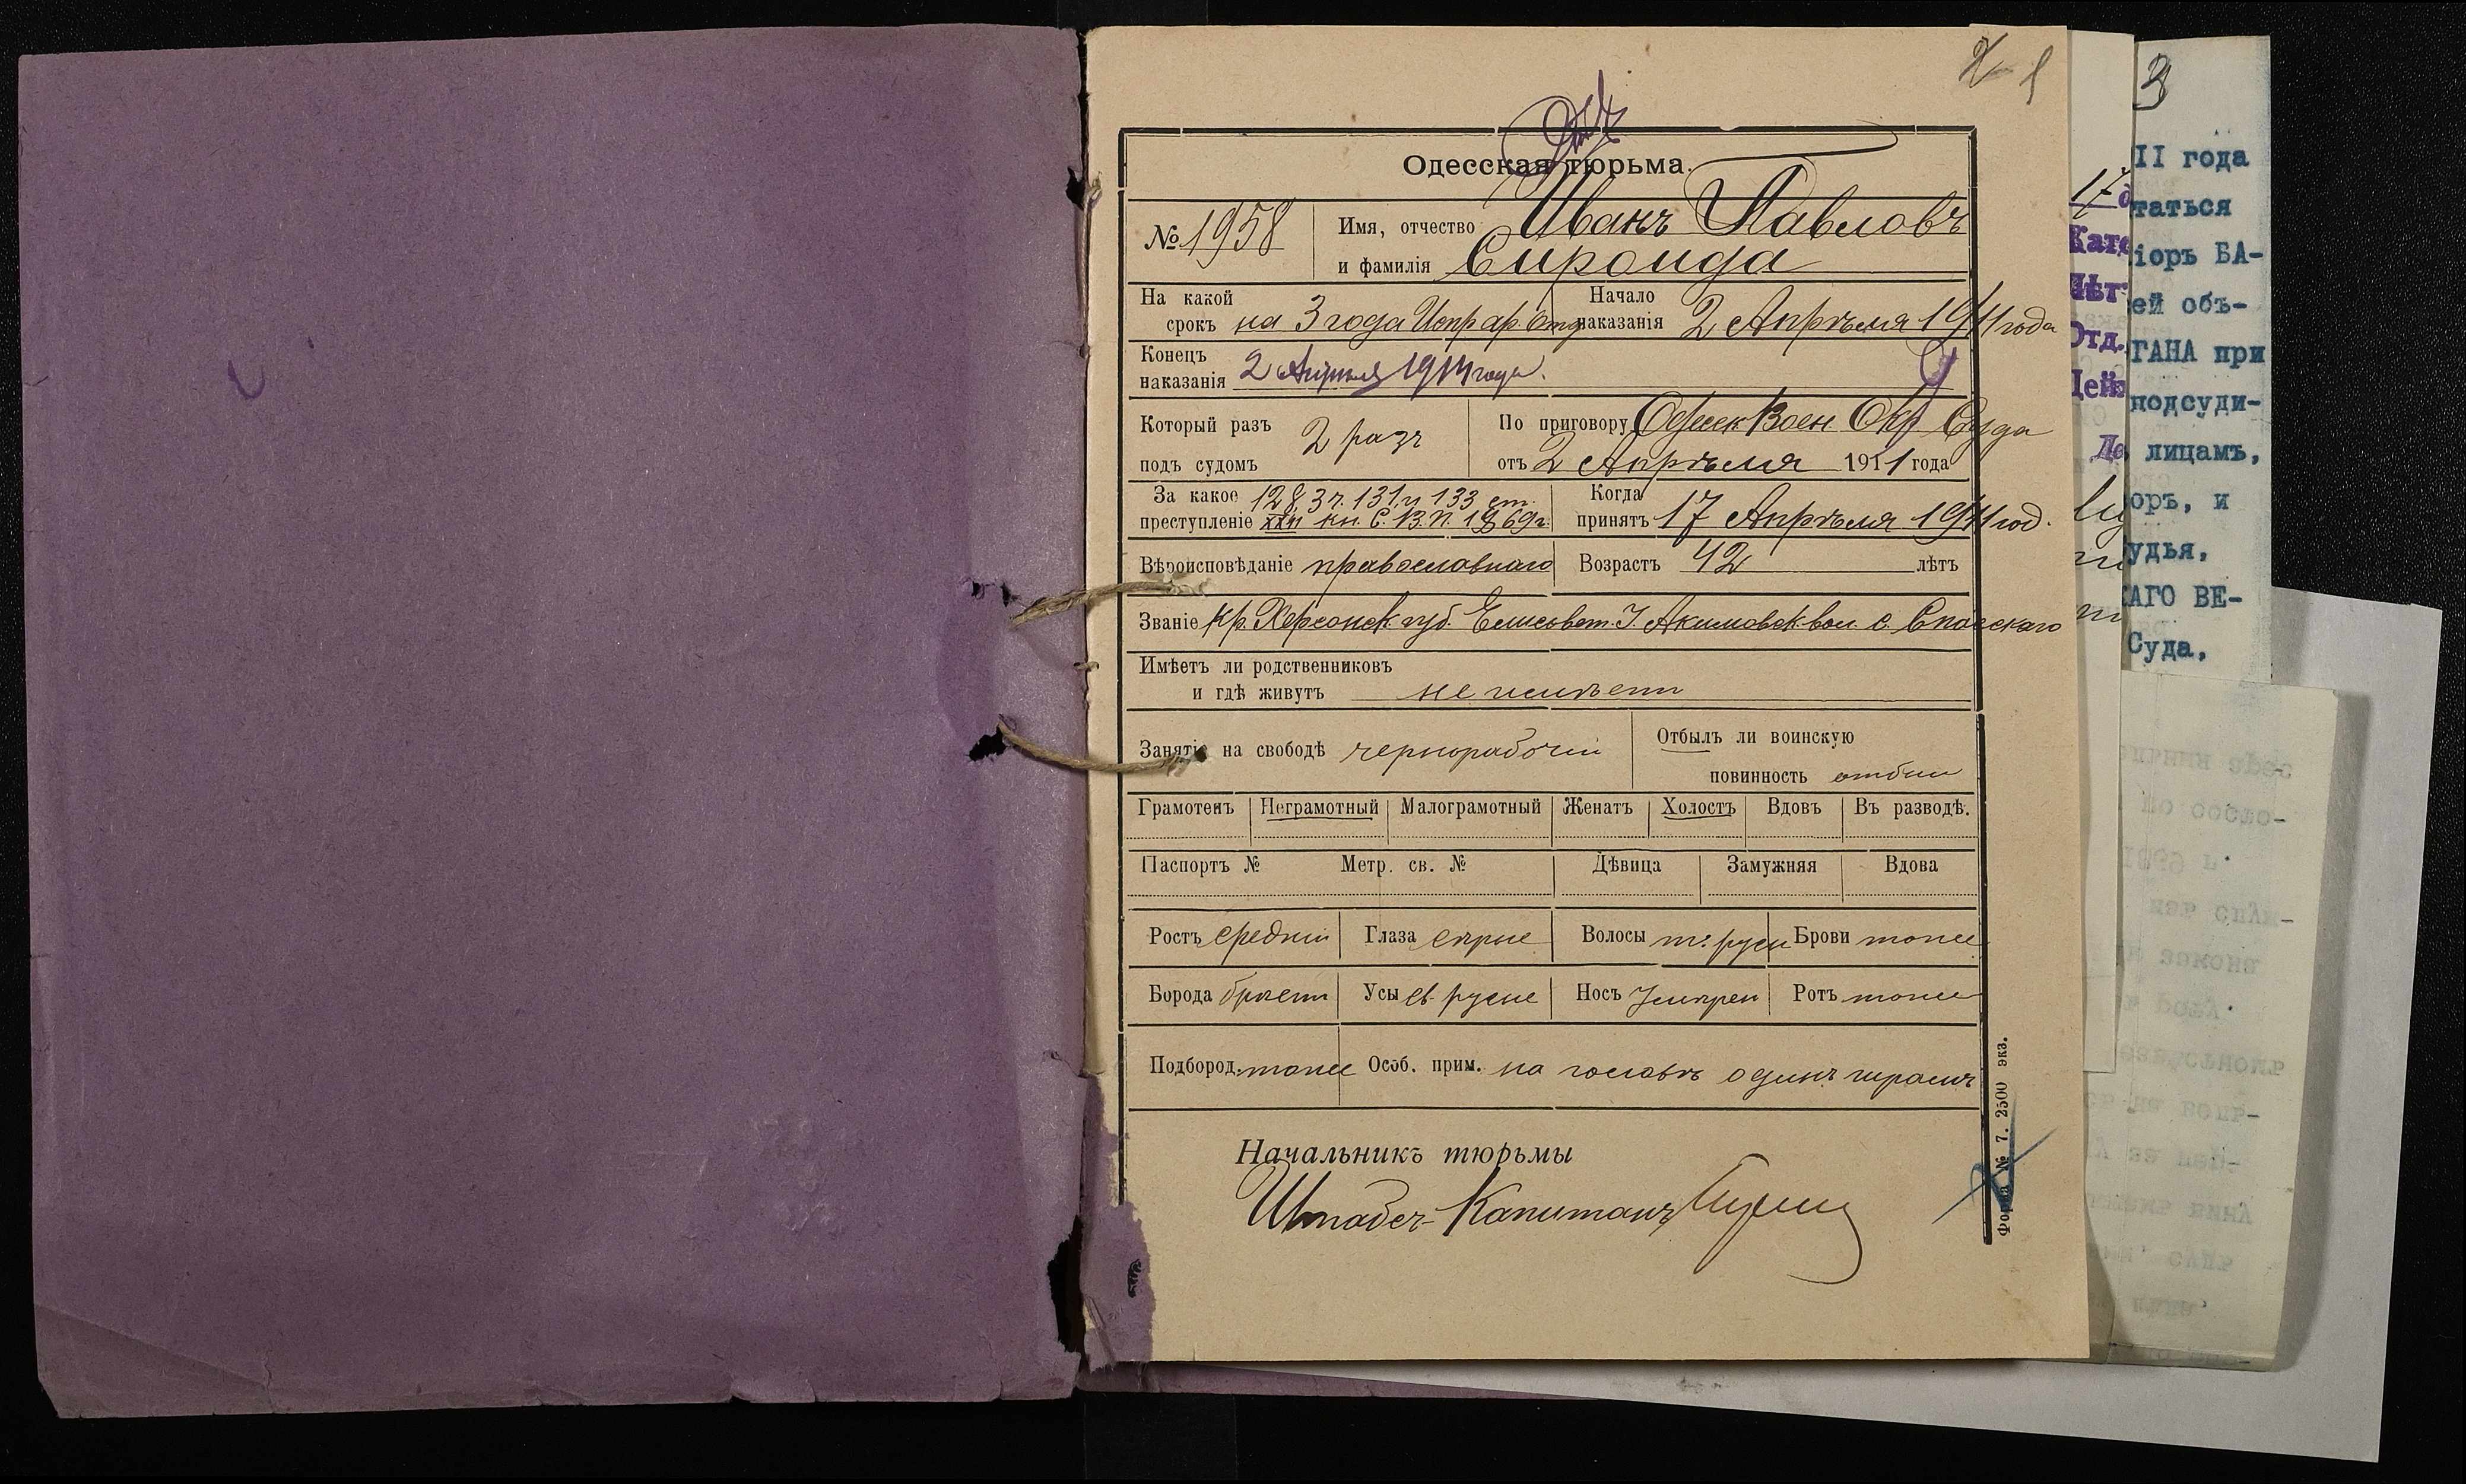 1
Одесская тюрьма.
№ 1958 Имя, отчество Иванъ Павловъ
и фамилія Сироида
На какой срокъ на 3 года Испр. ар. отд
Начало наказанія 2 Апрѣля 1911 года
Конецъ наказанія 2 Апрѣля 1914 года.
Который разъ подъ судомъ 2 разъ
По приговору Одесск Воен Окр Суда
отъ 2 Апрѣля 1911 года
За какое преступленіе 128, 3 ч. 131 и 133 ст.
XXII кн. С. В. П. 1869 г.
Когда принятъ 17 Апрѣля 1911 год.
Вѣроисповѣданіе православнаго
Возрастъ 42 лѣтъ
Званіе Кр. Херсонск. губ. Елисавет. у. Акимовск. вол. с. Спасскаго
Имѣетъ ли родственниковъ
и гдѣ живутъ не имѣетъ
Занятіе на свободѣ чернорабочій
Отбылъ ли воинскую
повинность отбылъ
Грамотенъ Неграмотный Малограмотный Женатъ Холостъ Вдовъ Въ разводѣ.
Паспортъ № Метр. св. № Дѣвица Замужняя Вдова
Ростъ средній Глаза сѣрые Волосы т. русы Брови тоже
Борода брѣетъ Усы св. русые Носъ умѣрен Ротъ тоже
Подбород. тоже Особ. прим. на головѣ одинъ шрамъ
Начальникъ тюрьмы
Штабсъ-Капитанъ
Форма № 7. 2500 экз.
17
Отд.
3
II года
таться
іоръ БА-
ей объ-
ГАНА при
подсуди-
лицамъ,
оръ, и
удья,
КАГО ВЕ-
Суда,